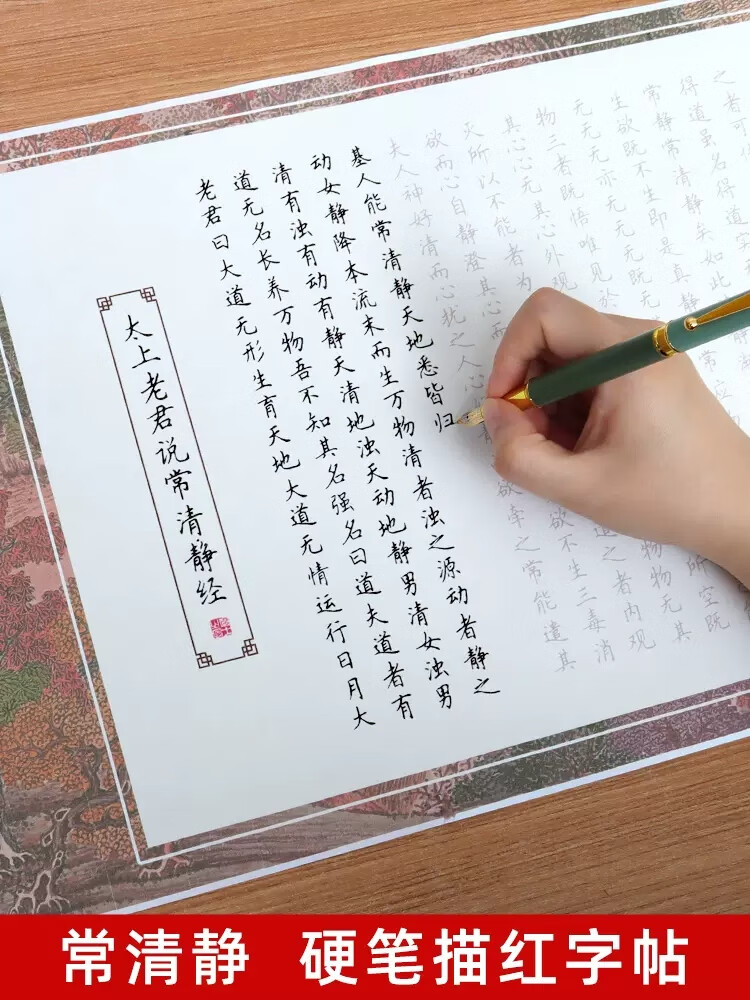 太上老君说常清静经
老君曰大道无形生育天地大道无情运行日月大
道无名长养万物吾不知其名强名曰道夫道者有
清有浊有动有静天清地浊天动地静男清女浊男
动女静降本流末而生万物清者浊之源动者静之
基人能常清静天地悉皆归
夫人神好清而心扰之人心 欲牵之常能遣其
欲而心自静澄其心而 欲不生三毒消
灭所以不能者为 遣之者内观
其心心无其心外观 物物无其
物三者既悟唯见於 所空既
无无无亦无无无既无
生欲既不生即是真静
常静常清静矣如此
得道虽名得道实
之者可
常清静 硬笔描红字帖